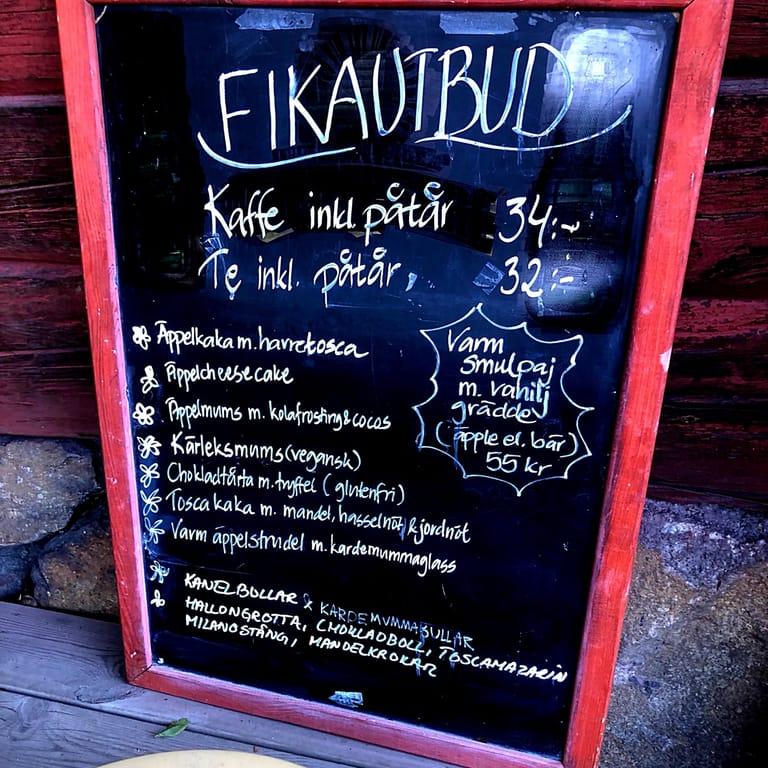 FIKAUTBUD
Kaffe inkl. påtår 34:-
Te inkl. påtår, 32:-
Äppelkaka m. havretosca
Äppelcheesecake
Äppelmums m. kolafrosting & cocos
Kärleksmums (vegansk)
Chokladtårta m. tryffel (glutenfri)
Tosca kaka m. mandel, hasselnöt & jordnöt
Varm äppelstrudel m. kardemummaglass
Varm
smulpaj
m. vanilj
grädde
(äpple el. bär)
55 kr
KANELBULLAR & KARDEMUMMABULLAR
HALLONGROTTA, CHOKLADBOLL, TOSCAMAZARIN
MILANOSTÅNG, MANDELKROKAR